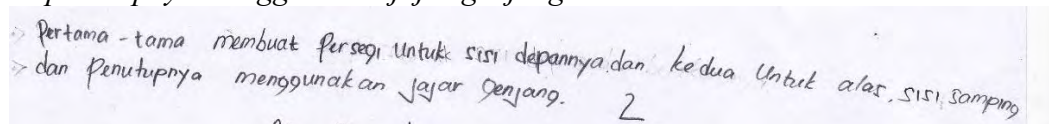 -> Pertama-tama membuat Persegi untuk sisi depannya dan kedua untuk alas, sisi samping
-> dan Penutupnya menggunakan jajar genjang. 2